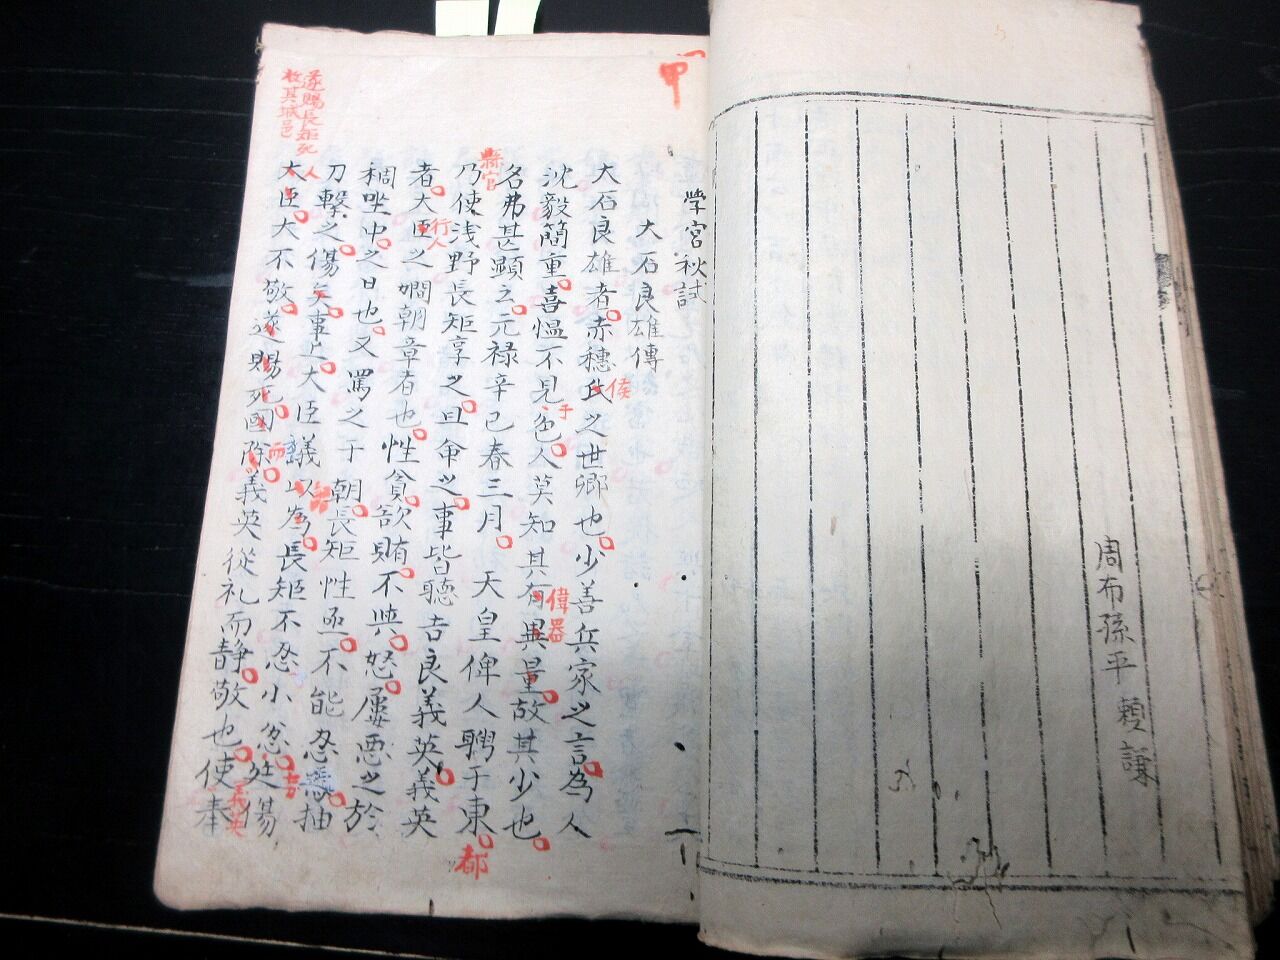 周布孫平 頼謙
甲
學宮秋試
大石良雄傳
大石良雄者赤穗氏之世卿也少善兵家之言為人
侯
沈毅簡重喜慍不見色人莫知其有異量故其少也
于
偉器
名弗甚顯云元禄辛巳春三月 天皇俾人聘于東
都
縣官
乃使浅野長矩享之且命之事皆聽吉良義英義英
行人
者大臣之嫺朝章者也性貪欲賄不與怒屢惡之於
稠坐中之日也又罵之于朝長矩性亟不能忍焉抽
刀擊之傷矣事上大臣議以為長矩不忍小忿廷傷
人
大臣大不敬遂賜死國除義英從礼而静敬也使奉
而
吉
義央
遂賜長矩死
收其城邑